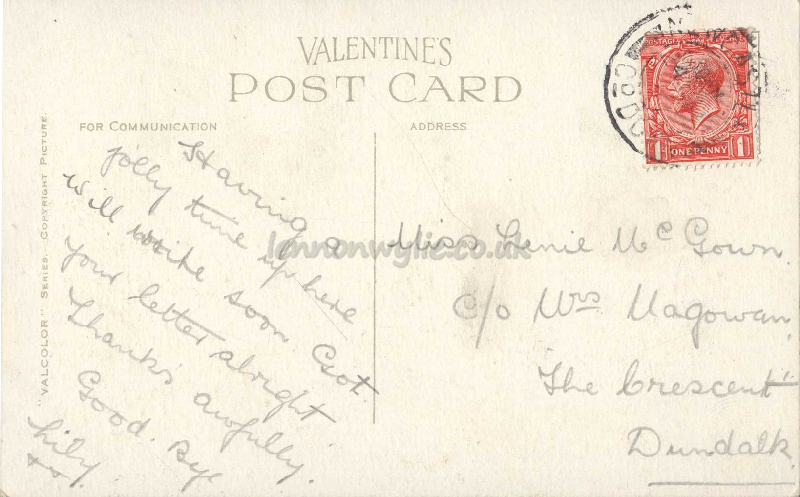 VALENTINE'S
POST CARD
FOR COMMUNICATION
ADDRESS
"VALCOLOR" SERIES. COPYRIGHT PICTURE.
POSTAGE
ONE PENNY
1
1
Having a
jolly time up here.
Will write soon. Got
your letter alright
Thanks awfully.
Good. Bye
Lily
xx.
Miss Lenie Mc Gown.
c/o Mrs Magowan
The Crescent
Dundalk.
lennonwylie.co.uk